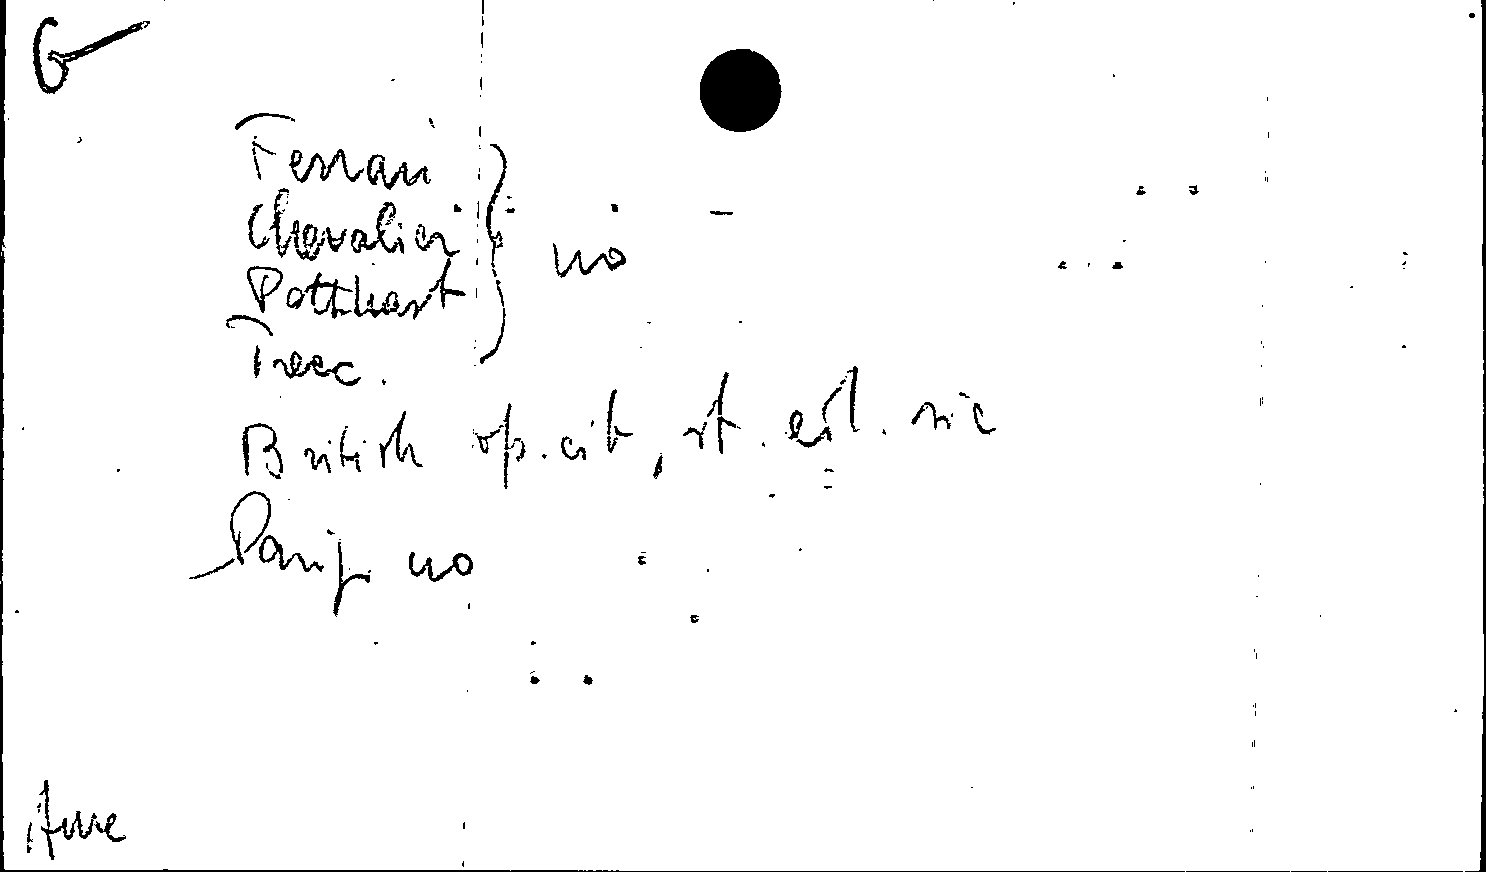 G
Ferrari
Chevalier
Potthast } no
Trecc.
British op. cit, st. ed. sic
Parigi no
Ame